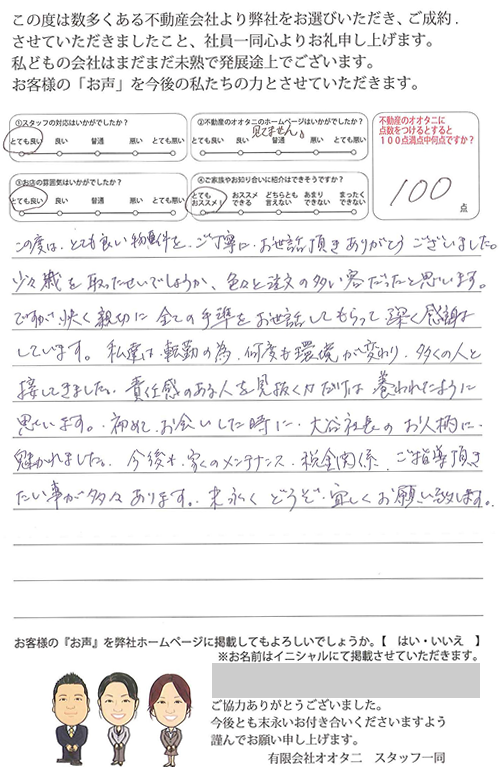 この度は数多くある不動産会社より弊社をお選びいただき、ご成約.
させていただきましたこと、社員一同心よりお礼申し上げます。
私どもの会社はまだまだ未熟で発展途上でございます。
お客様の「お声」を今後の私たちの力とさせていただきます。
①スタッフの対応はいかがでしたか？
とても良い 良い 普通 悪い とても悪い
②不動産のオオタニのホームページはいかがでしたか？
見てません。
とても良い 良い 普通 悪い とても悪い
不動産のオオタニに
点数をつけるとすると
１００点満点中何点ですか？
100
点
③お店の雰囲気はいかがでしたか？
とても良い 良い 普通 悪い とても悪い
④ご家族やお知り合いに紹介はできそうですか？
とても オススメ どちらとも あまり まったく
オススメ！ できる 言えない できない できない
この度は、とても良い物件を、ご丁寧に、お世話頂きありがとうございました。
少々歳を取ったせいでしょうか、色々と注文の多い客だったと思います。
ですが、快く親切に全ての手準をお世話してもらって深く感謝
しています。私達は転勤の為、何度も環境が変わり、多くの人と
接してきました。責任感のある人を見抜く力だけは養われたように
思います。初めてお会いした時に、大谷社長のお人柄に、
魅かれました。今後も、家のメンテナンス、税金関係、ご指導頂き
たい事が多々あります。末永くどうぞ、宜しくお願い致します。
お客様の『お声』を弊社ホームページに掲載してもよろしいでしょうか。【　はい・いいえ　】
※お名前はイニシャルにて掲載させていただきます。
ご協力ありがとうございました。
今後とも末永いお付き合いくださいますよう
謹んでお願い申し上げます。
有限会社オオタニ　スタッフ一同